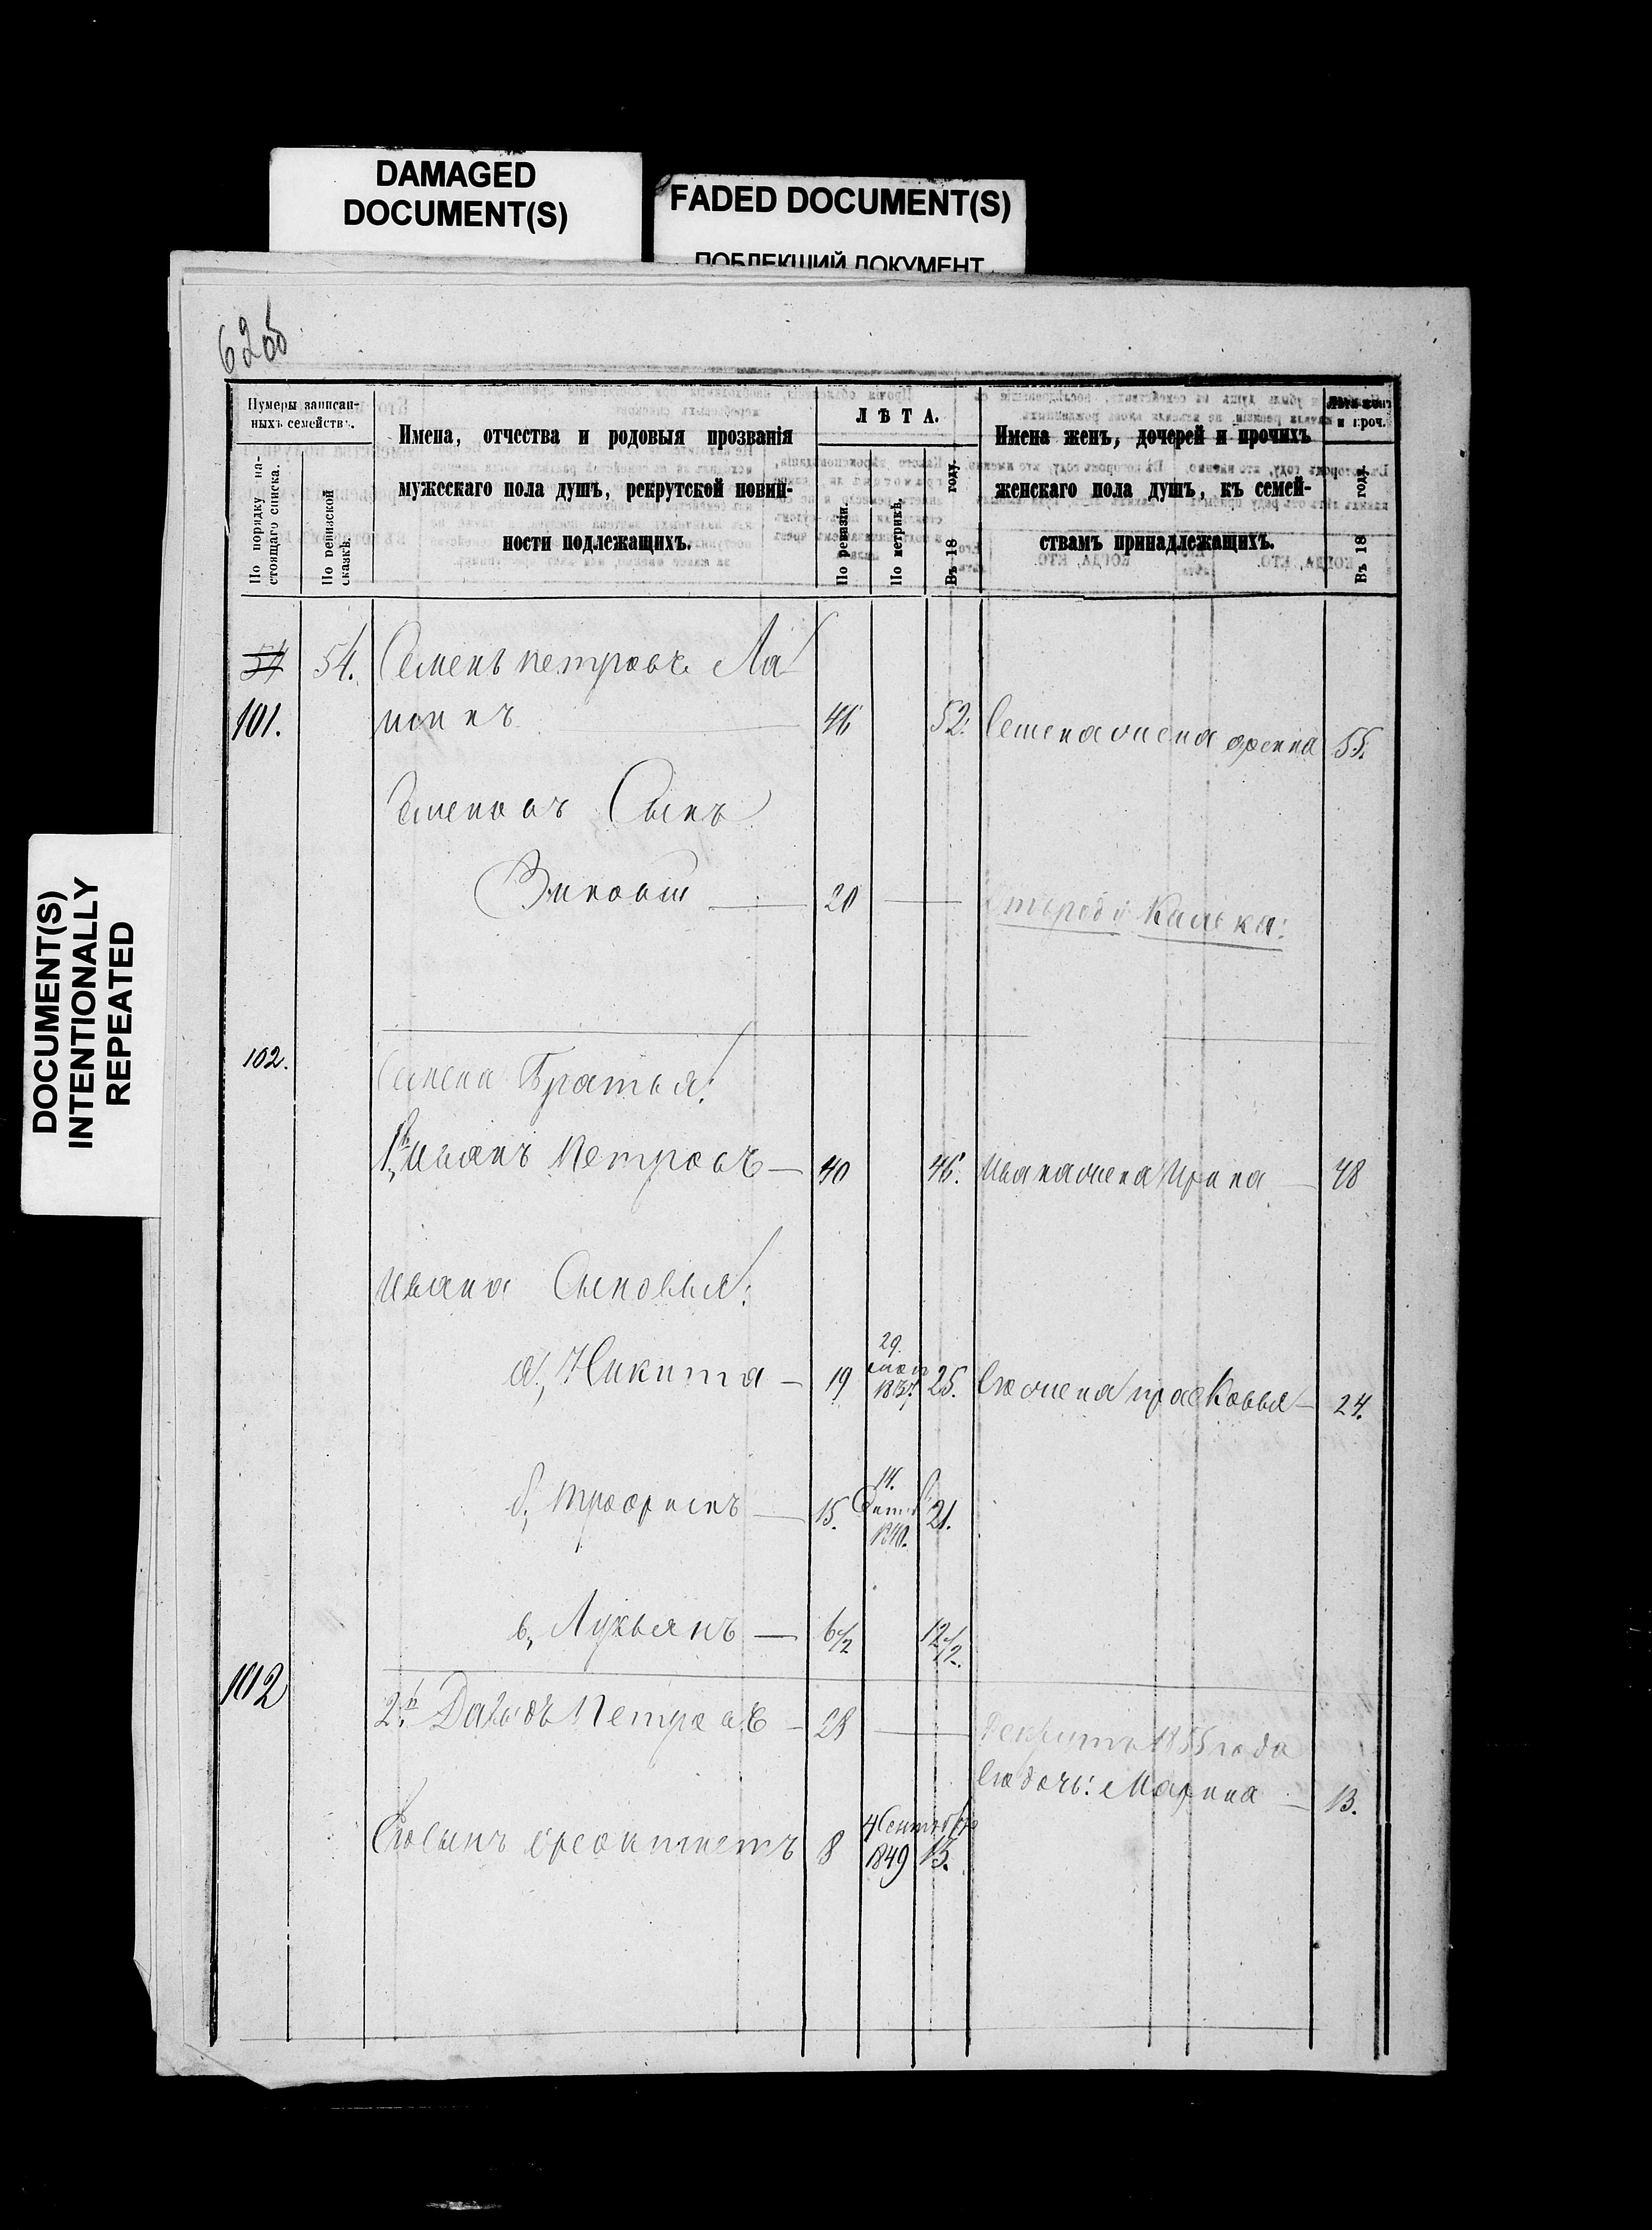 DAMAGED
DOCUMENT(S)
FADED DOCUMENT(S)
ПОБЛЕКШИЙ ДОКУМЕНТ
DOCUMENT(S)
INTENTIONALLY
REPEATED
62об
Нумеры записан-
ныхъ семействъ.
По порядку на-
стоящаго списка.
По ревизской
сказкѣ.
Имена, отчества и родовыя прозванія
мужескаго пола душъ, рекрутской повин-
ности подлежащихъ.
ЛѢТА.
По ревизіи.
По метрикѣ.
Въ 18 году.
Имена женъ, дочерей и прочихъ
женскаго пола душъ, къ семей-
ствамъ принадлежащихъ.
и проч.
Въ 18 году.
54 54. Семенъ Петровъ Ла
101. 46 52. Семена жена 55.
Семеновъ Сынъ
20
102. Семена Братья:
1й Иванъ Петровъ — 40 46. Ивана жена Ирина — 48
Ивана Сыновья:
а, Никита — 19 29. 1837. 25. Его жена Прасковья — 24.
б, Трофимъ — 15. 14. 1840. 21.
в, Лукьянъ — 6 1/2 12 1/2.
102 2й Давыдъ Петровъ — 28 — Рекрутъ 1855 года
Его дочь: Марина — 13.
Его сынъ Феоктистъ 8 4 Сентября 1849 13.